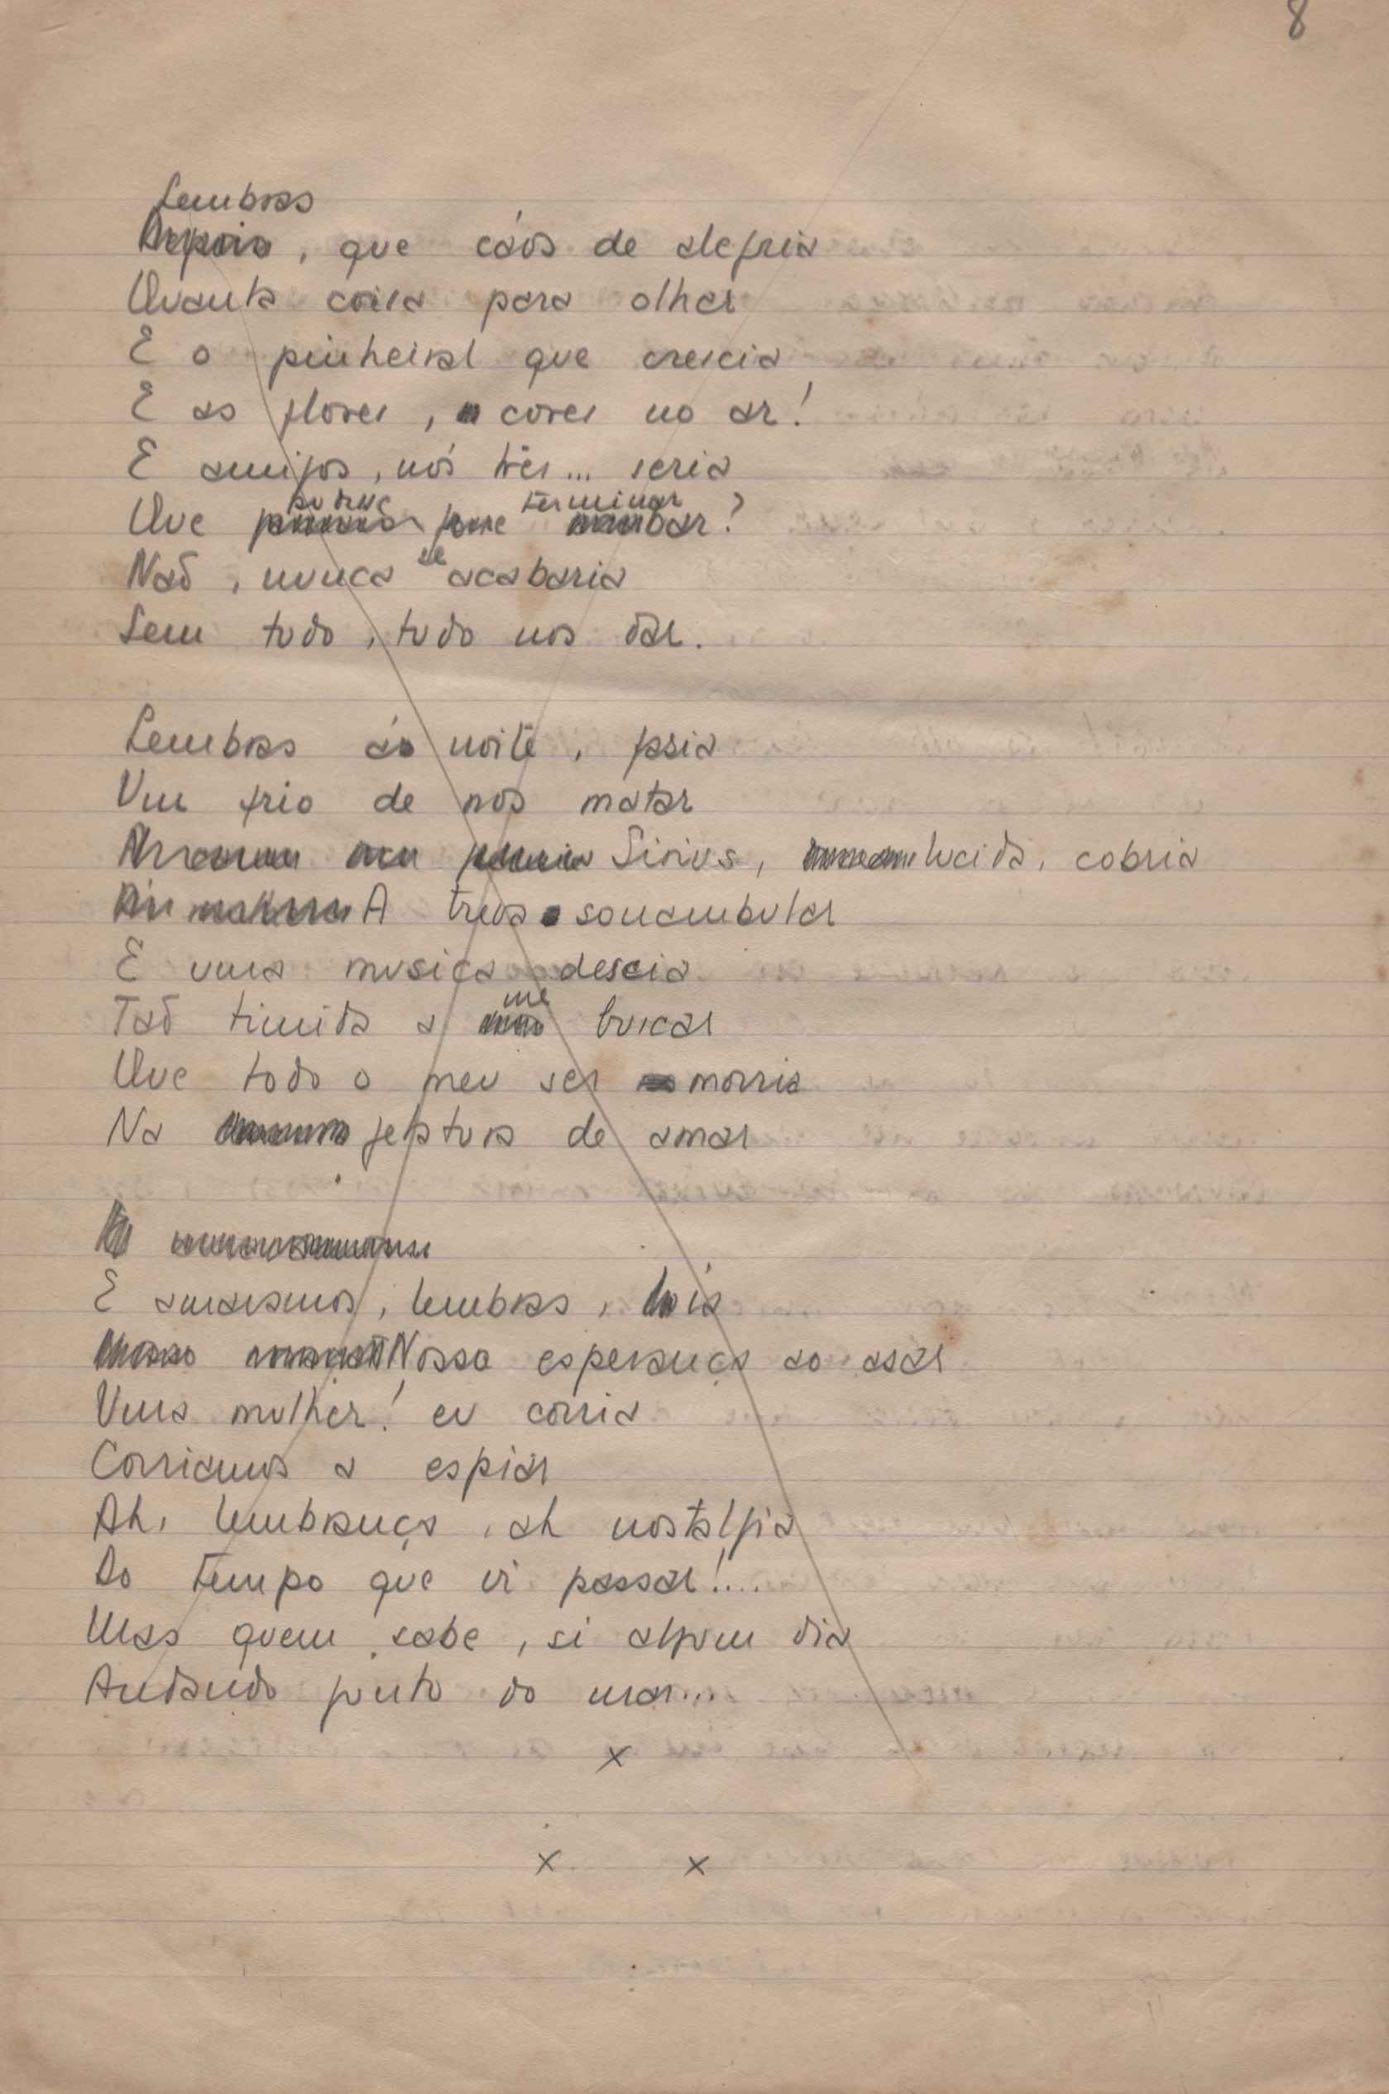 8
Lembras
Depois, que cáos de alegria
Quanta coisa para olhar
E o pinheiral que crescia
E as flores, cores no ar!
E amigos, nós três... seria
pudesse terminar
Que ?
se
Não, nunca acabaria
Sem tudo, tudo nos dar.
Lembras á noite, fazia
Um frio de nos matar
Sirius, lucida, cobria
A treva sonambular
E uma musica descia
me
Tão timida a buscar
Que todo o meu ser morria
Na de amar
E amavamos, lembras, havia
Nossa esperança ao azar
Uma mulher! eu corria
Corriamos a espiar
Ah, lembrança, ah nostalgia
Do tempo que vi passar!....
Mas quem sabe, si algum dia
Andando junto do mar...
x
x x